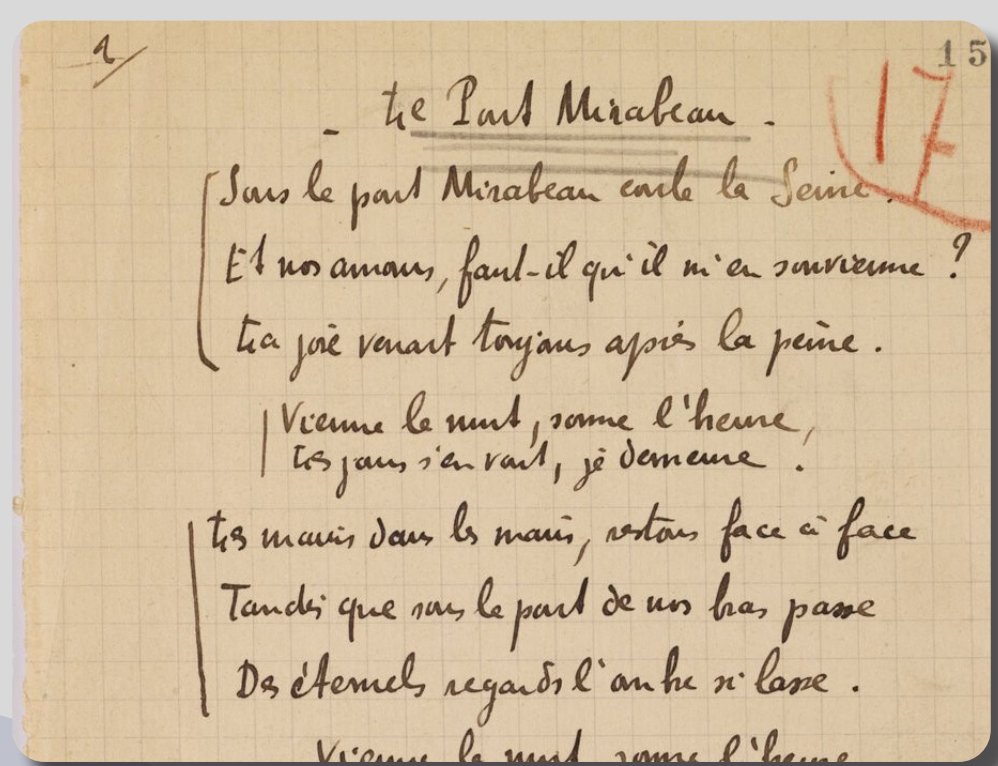 15
17
- Le Pont Mirabeau -
Sous le pont Mirabeau coule la Seine.
Et nos amours, faut-il qu'il m'en souvienne ?
La joie venait toujours après la peine.
Vienne la nuit, sonne l'heure,
Les jours s'en vont, je demeure.
Les mains dans les mains, restons face à face
Tandis que sous le pont de nos bras passe
Des éternels regards l'onde si lasse.
Vienne la nuit sonne l'heure